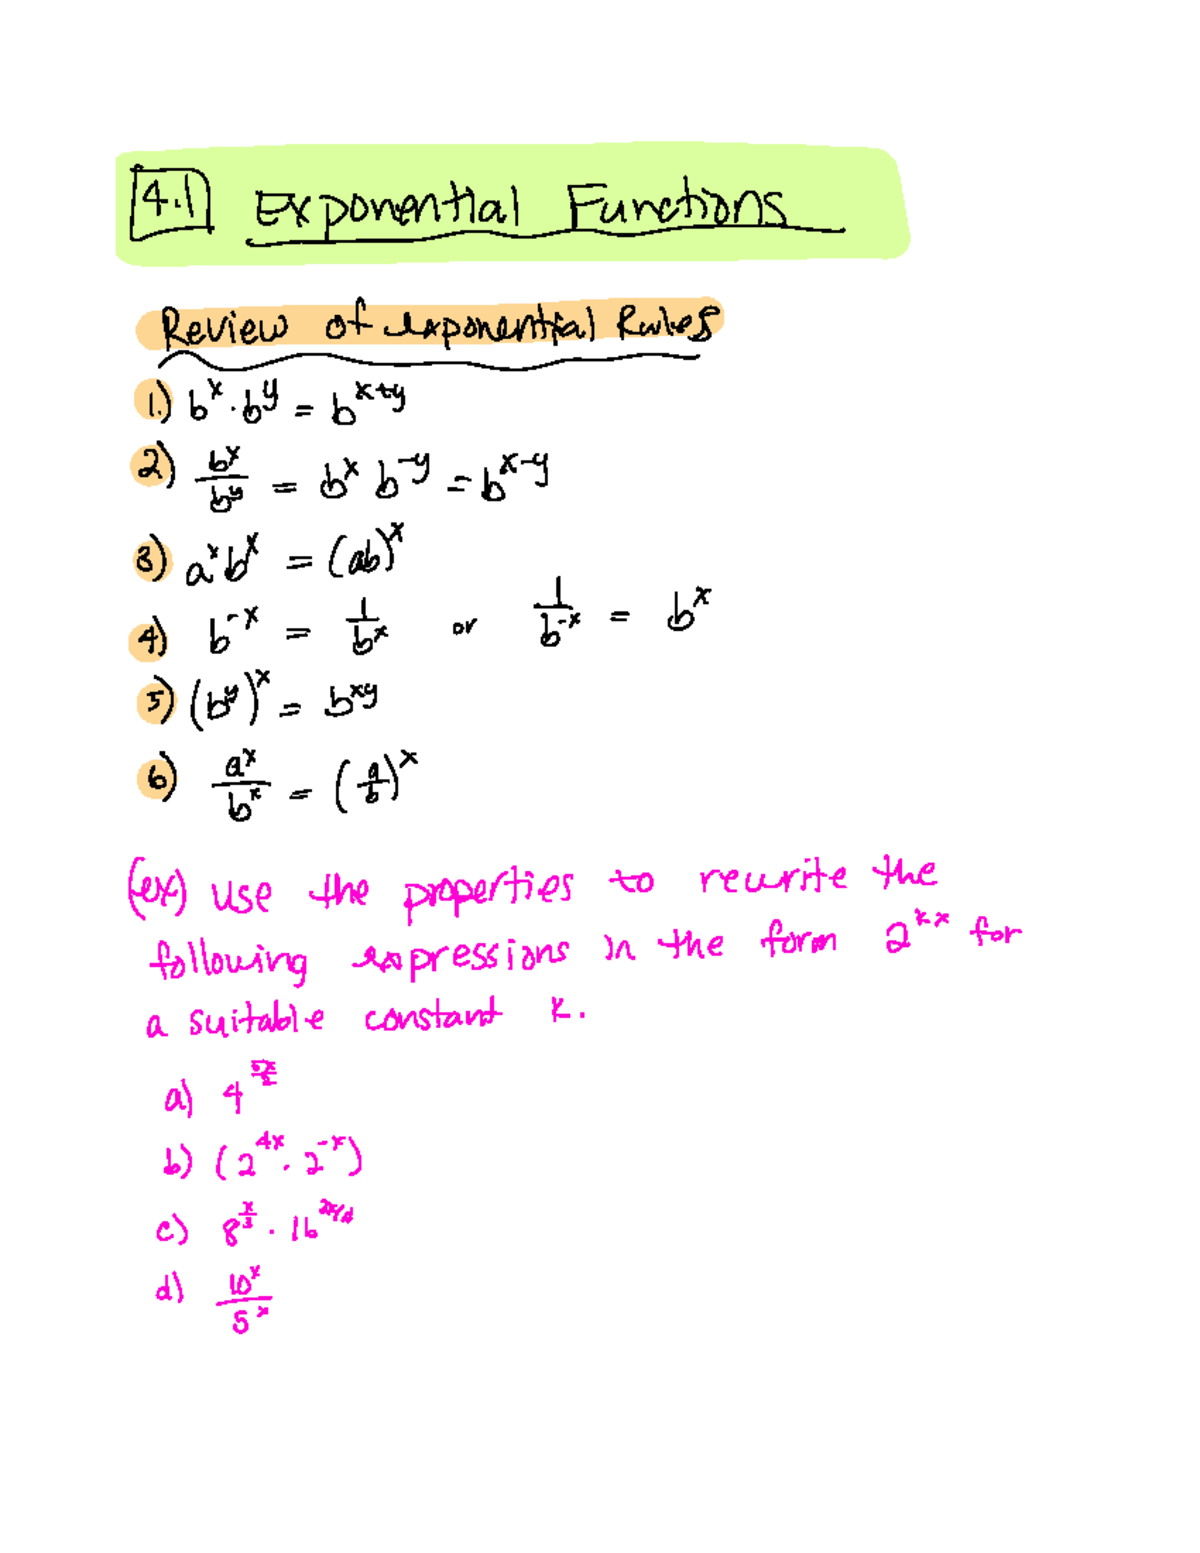 4.1 Exponential Functions
Review of exponential Rules
1.) b^x · b^y = b^{x+y}
2) b^x / b^y = b^x b^{-y} = b^{x-y}
3) a^x b^x = (ab)^x
4) b^{-x} = 1 / b^x or 1 / b^{-x} = b^x
5) (b^y)^x = b^{xy}
6) a^x / b^x = (a/b)^x
(ex) Use the properties to rewrite the
following expressions in the form 2^{kx} for
a suitable constant k.
a) 4^{5x/2}
b) (2^{4x} · 2^{-x})
c) 8^{x/3} · 16
d) 10^x / 5^x